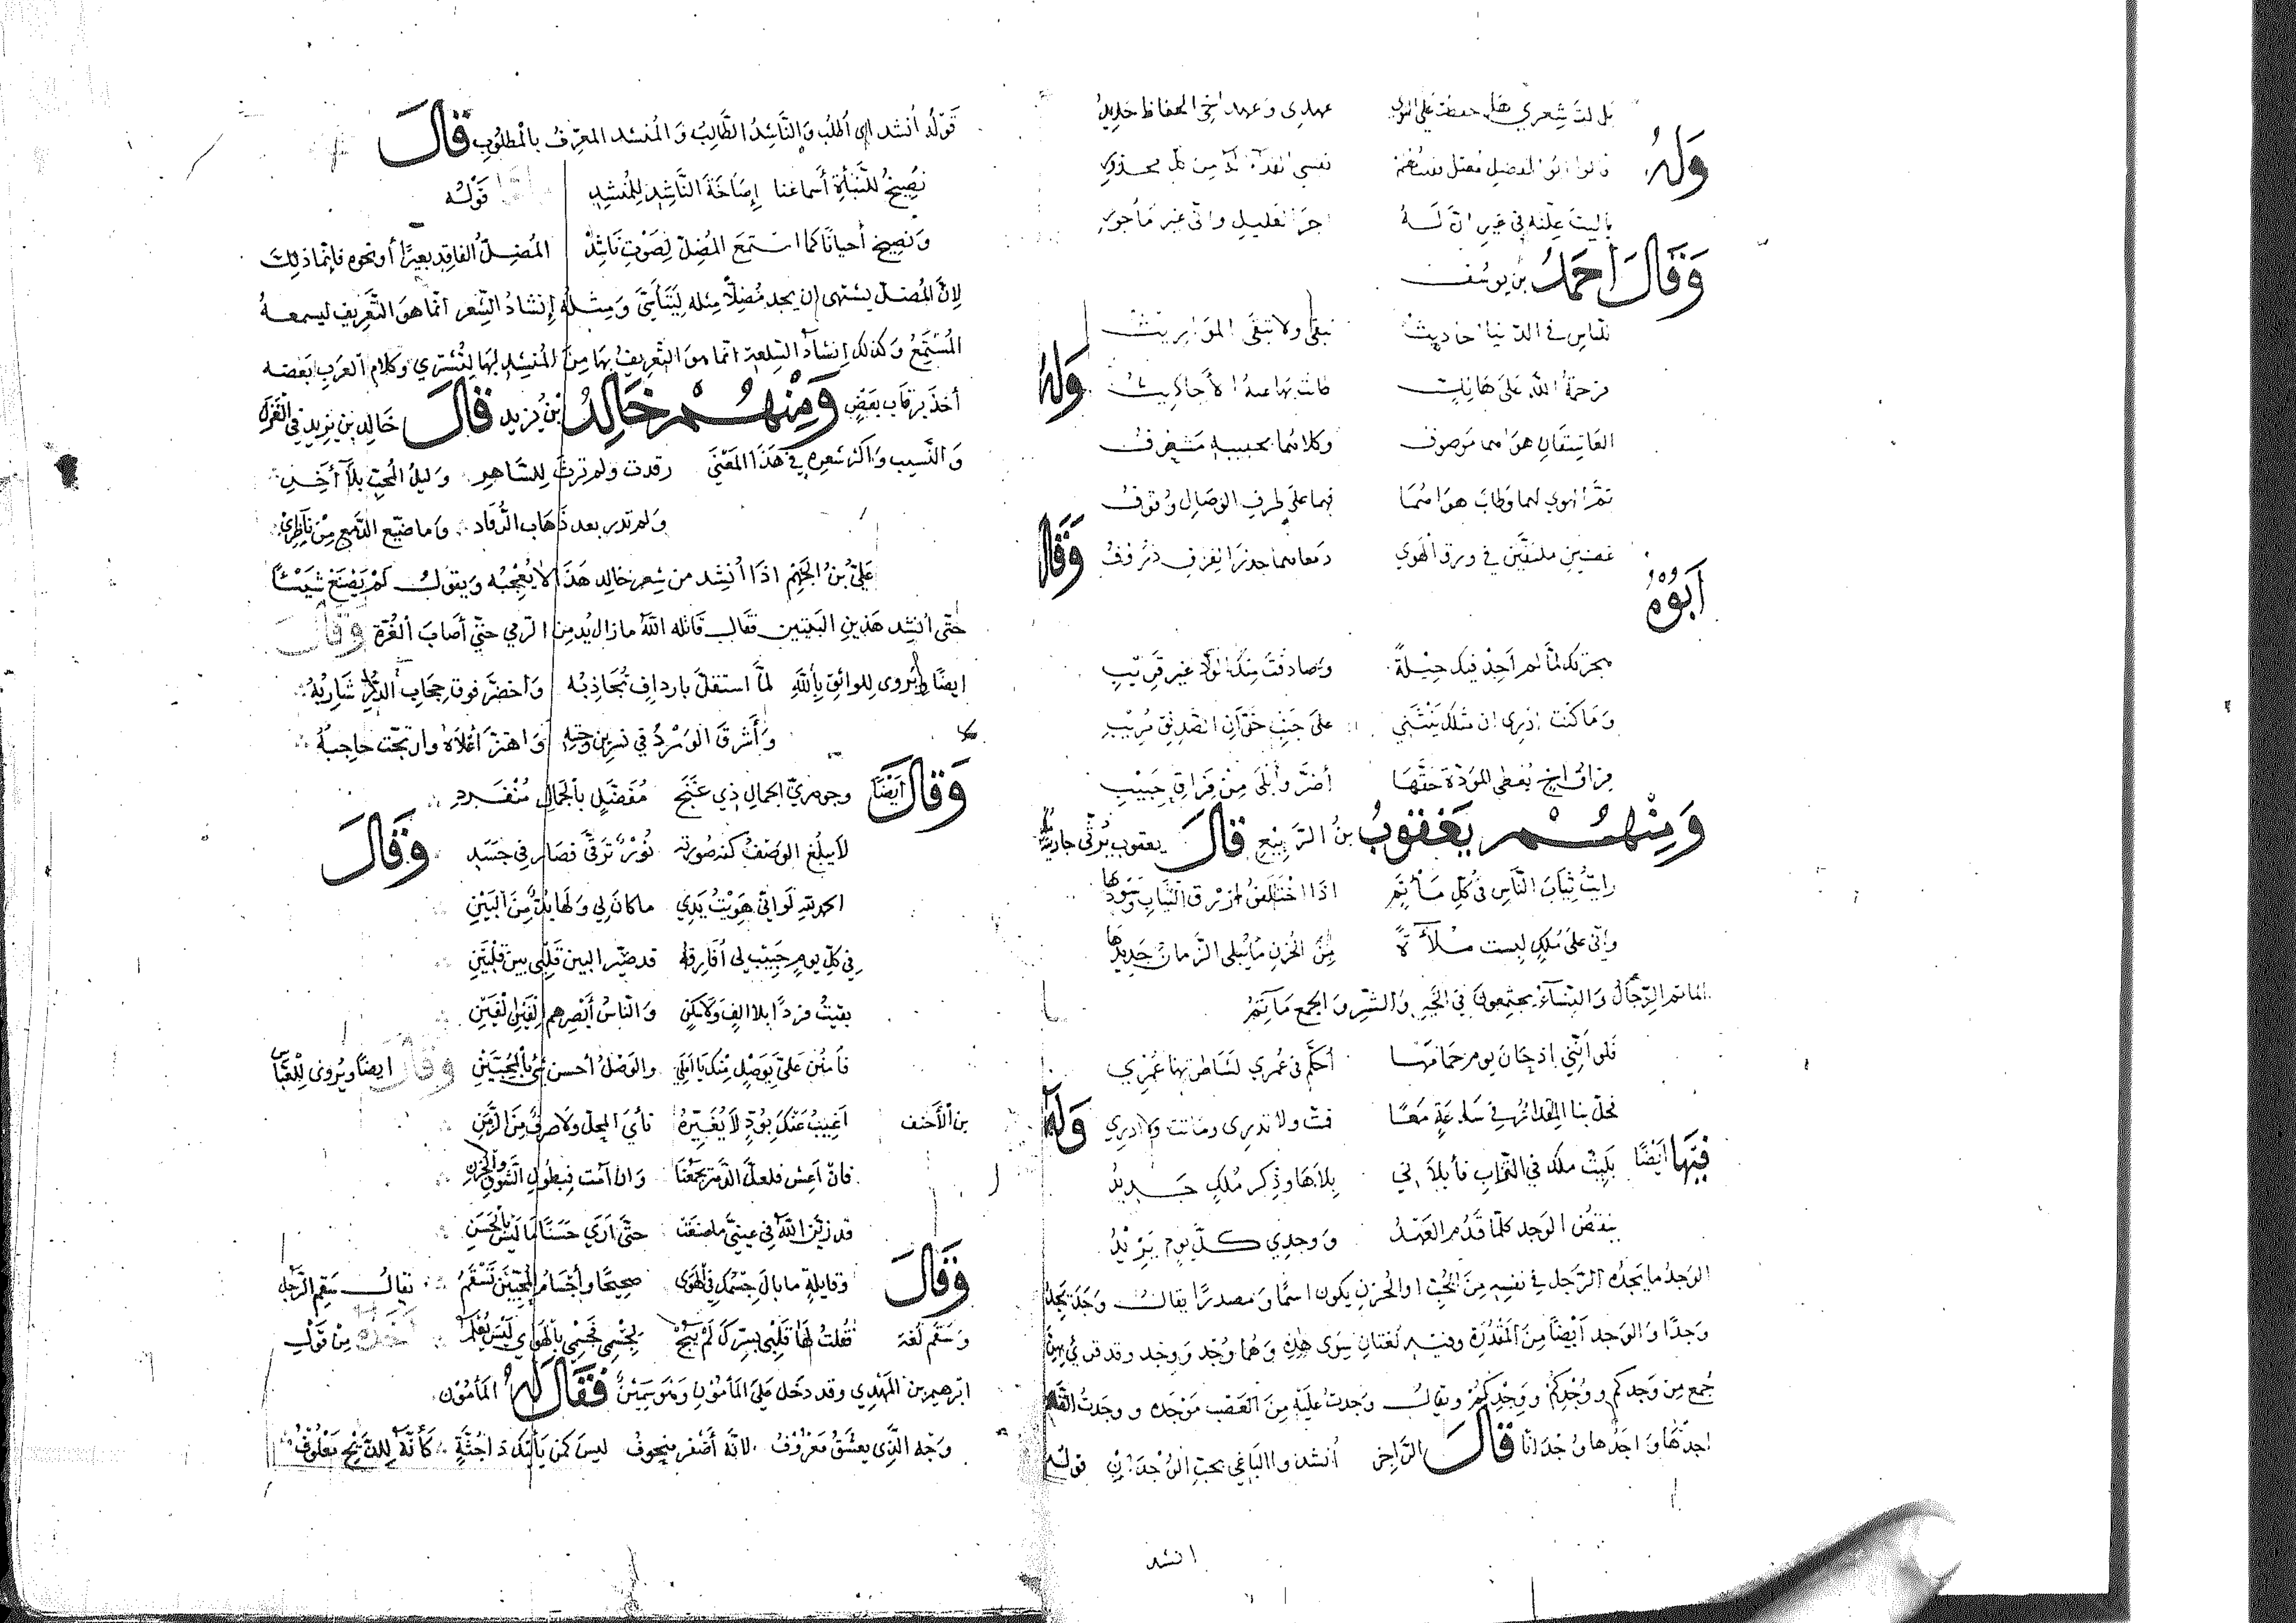 بل لت شعري هل حفظت على النوى عهدي وعهد اخي الحفاظ جديد
وله قالوا ابو الفضل معتل فقلت لهم نفسي الفداء له من كل محذور
ياليت علته بي غير ان له اجر العليل واني غير مأجور
وقال احمد بن يوسف
للناس في الدنيا احاديث تبقى ولا تبقى المواريث
فرحمة الله على هالك كانت بها عنه الأحاديث وله
العاشقان هواهما موصوف وكلاهما بحبيبه مشغوف
تم الهوى لهما وطاب هواهما فهما على طرف الوصال وقوف
غصنين ملتفين في ورق الهوى وقال
ابوه
هجرتك لما لم اجد فيك حيلة وصادفت منك الود غير قريب
وما كنت ادري ان مثلك ينثني على جنب خوان الصديق مريب
فراق اخ يعطي المودة حقها أضر وأبلى من فراق حبيب
ومنهم يعقوب بن الربيع قال يعقوب يرثي جاريته
رايت ثياب الناس في كل مأتم اذا اختلفن ازرق الثياب وسودها
واني على ملك لبست ملآءة من الحزن ما يبلى الزمان جديدها
الماتم الرجال والنساء يجتمعون في الخير والشر والجمع مآتم
فلو انني اذ حان يوم حمامها أحكم في عمري لشاطرتها عمري
فحل بنا المقدار في ساعة معا فمت ولا تدري وماتت ولا ادري وله
فيها ايضا بليت ملك في التراب فأبلاني بلاها وذكر ملك جديد
ينقص الوجد كلما قدم العهد ووجدي كل يوم يزيد
الوجد ما يجده الرجل في نفسه من الحب او الحزن يكون اسما ومصدرا يقال وجد يجد
وجدا والوجد أيضا من المقدرة وفيه لغتان سوى هذه وهما وجد ووجد وقد قرئ بهن
جمع من وجدكم ووجدكم ووجدكم ويقال وجدت عليه من الغضب موجدة ووجدت
اجدها واجدها وجدانا قال الراجز أنشد والباغي يحب الوجدان قوله
انشد
قوله أنشد اي أطلب والناشد الطالب والمنشد المعرف بالمطلوب قال
نصيخ للنبأة أسماعنا إصاخة الناشد للمنشد قوله
ونصيخ أحيانا كما استمع المضل لصوت ناشد المضل الفاقد بعيرا أو نحوه فإنما ذلك
لان المضل يشتهي ان يجد مضلا مثله ليتأسى ومثله إنشاد الشعر انما هو التعريف ليسمعه
المستمع وكذلك إنشاد السلعة انما هو التعريف بها من المنشد لها لتشتري وكلام العرب بعضه
أخذ برقاب بعض ومنهم خالد بن يزيد قال خالد بن يزيد في الغزل
والنسيب واكثر شعره في هذا المعنى رقدت ولم ترث للساهر وليل المحب بلا أخر
ولم تدر بعد ذهاب الرقاد وما صنع الدمع من ناظري
علي بن الجهم اذا أنشد من شعر خالد هذا لا يعجبه ويقول لم يصنع شيئا
حتى أنشد هذين البيتين فقال قاتله الله مازال يدمن الرمي حتى أصاب الغرة وقال
ايضا ويروى للواثق بالله لما استقل بارداف تجاذبه واخضر فوق حجاب الدر شاربه
وأشرق الورد في نسرين وجنته واهتز اعلاه وارتجت حاجبه
وقال ايضا وجوهري الجمال ذي غنج مفضل بالجمال منفرد
لا يبلغ الوصف كنه صورته نور ترقى فصار في جسد وقال
الحمد لله لو اني هويت يدي ما كان لي ولها بد من البين
في كل يوم حبيب لي أفارقه قد صير البين قلبي بين قلبين
بقيت فردا بلا الف ولا سكن والناس أبصرهم إلفين إلفين
فأمنن علي بوصل منك يا املي والوصل أحسن شئ بالمحبين وقال ايضا ويروى للعباس
بن الأحنف اغيب عنك بود لا يغيره نأي المحل ولا صرف من الزمن
فان اعش فلعل الدهر يجمعنا وان أمت فبطول الشوق والحزن
قد زين الله في عيني ما صنعت حتى ارى حسنا ما ليس بالحسن
وقال وقايلة ما بال جسمك في الهوى صحيحا وأجسام المحبين تسقم يقال سقم الرجل
وسقم لغة فقلت لها قلبي بسرك لم يبح لجسمي فجسمي بالهوى ليس يعلم أخذه من قول
ابرهيم بن المهدي وقد دخل على المأمون وهو سمين فقال له المأمون
وجه الذي يعشق معروف لانه أصفر منحوف ليس كمن يأتيك ذا جثة كأنه للذبح معلوف